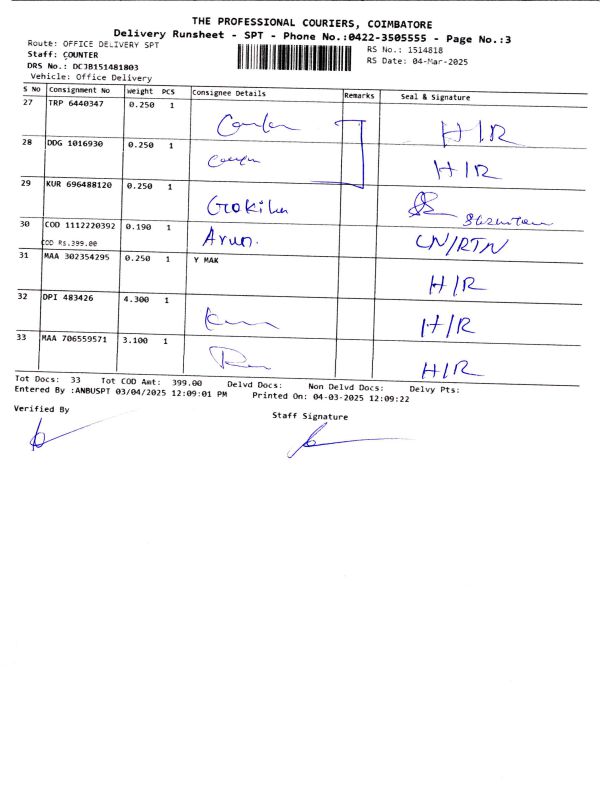 THE PROFESSIONAL COURIERS, COIMBATORE
Delivery Runsheet - SPT - Phone No.:0422-3505555 - Page No.:3
Route: OFFICE DELIVERY SPT
RS No.: 1514818
Staff: COUNTER
RS Date: 04-Mar-2025
DRS No.: DCJB151481803
Vehicle: Office Delivery
S No Consignment No Weight PCS Consignee Details Remarks Seal & Signature
27 TRP 6440347 0.250 1 H/R
28 DDG 1016930 0.250 1 H/R
29 KUR 696488120 0.250 1 Gokila
30 COD 1112220392 0.190 1 Arun. CN/RTN
COD Rs.399.00
31 MAA 302354295 0.250 1 Y MAK H/R
32 DPI 483426 4.300 1 H/R
33 MAA 706559571 3.100 1 H/R
Tot Docs: 33 Tot COD Amt: 399.00 Delvd Docs: Non Delvd Docs: Delvy Pts:
Entered By :ANBUSPT 03/04/2025 12:09:01 PM Printed On: 04-03-2025 12:09:22
Verified By
Staff Signature